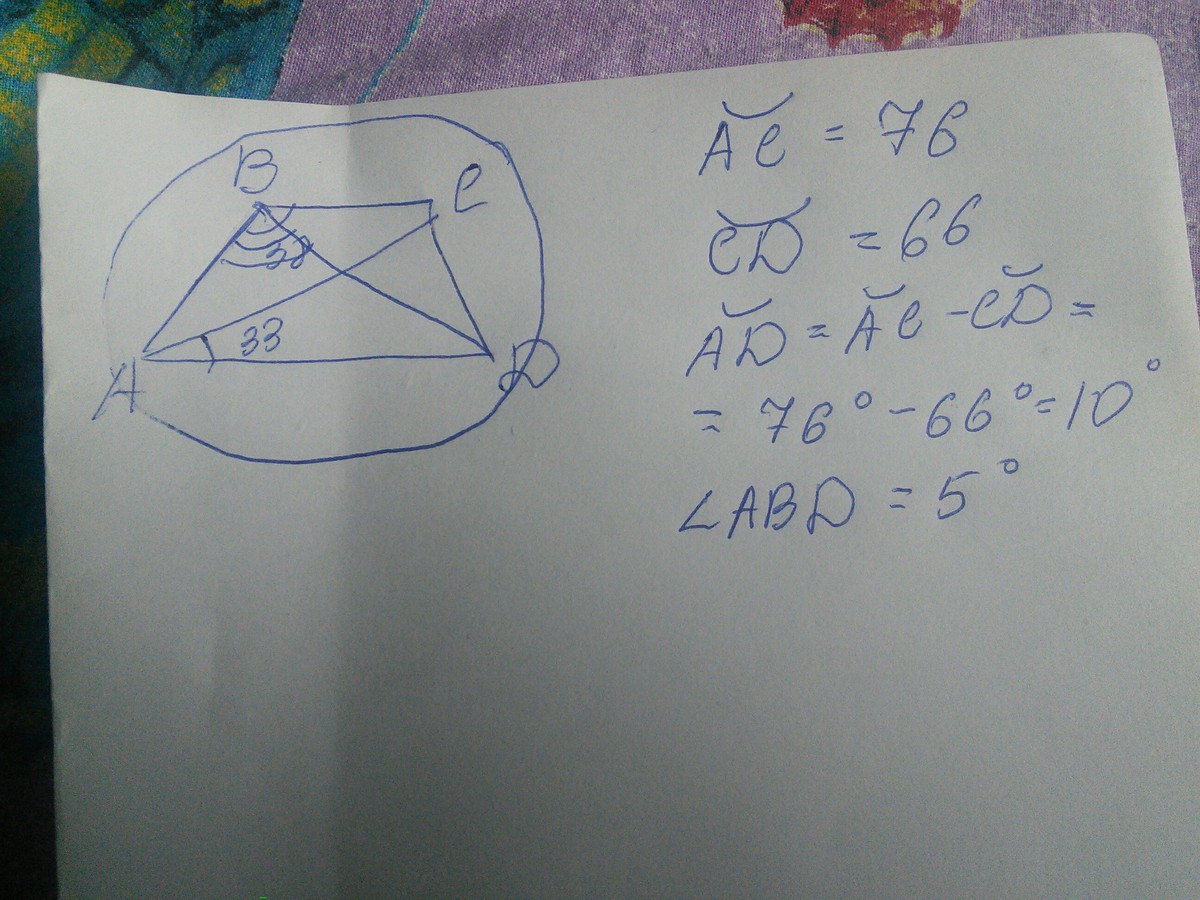 B
C
38
33
A
D
A͝C = 76
C͝D = 66
A͝D = A͝C - C͝D =
= 76° - 66° = 10°
∠ABD = 5°